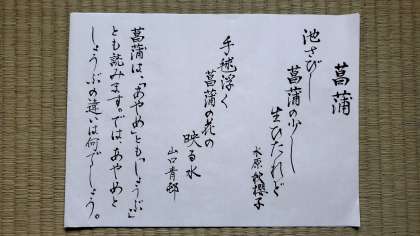 菖蒲
池さびし
菖蒲の少し
生ひたれど
水原秋櫻子
手毬浮く
菖蒲の花の
映る水
山口青邨
菖蒲は、「あやめ」とも「しょうぶ」
とも読みます。では、あやめと
しょうぶの違いは何でしょう。